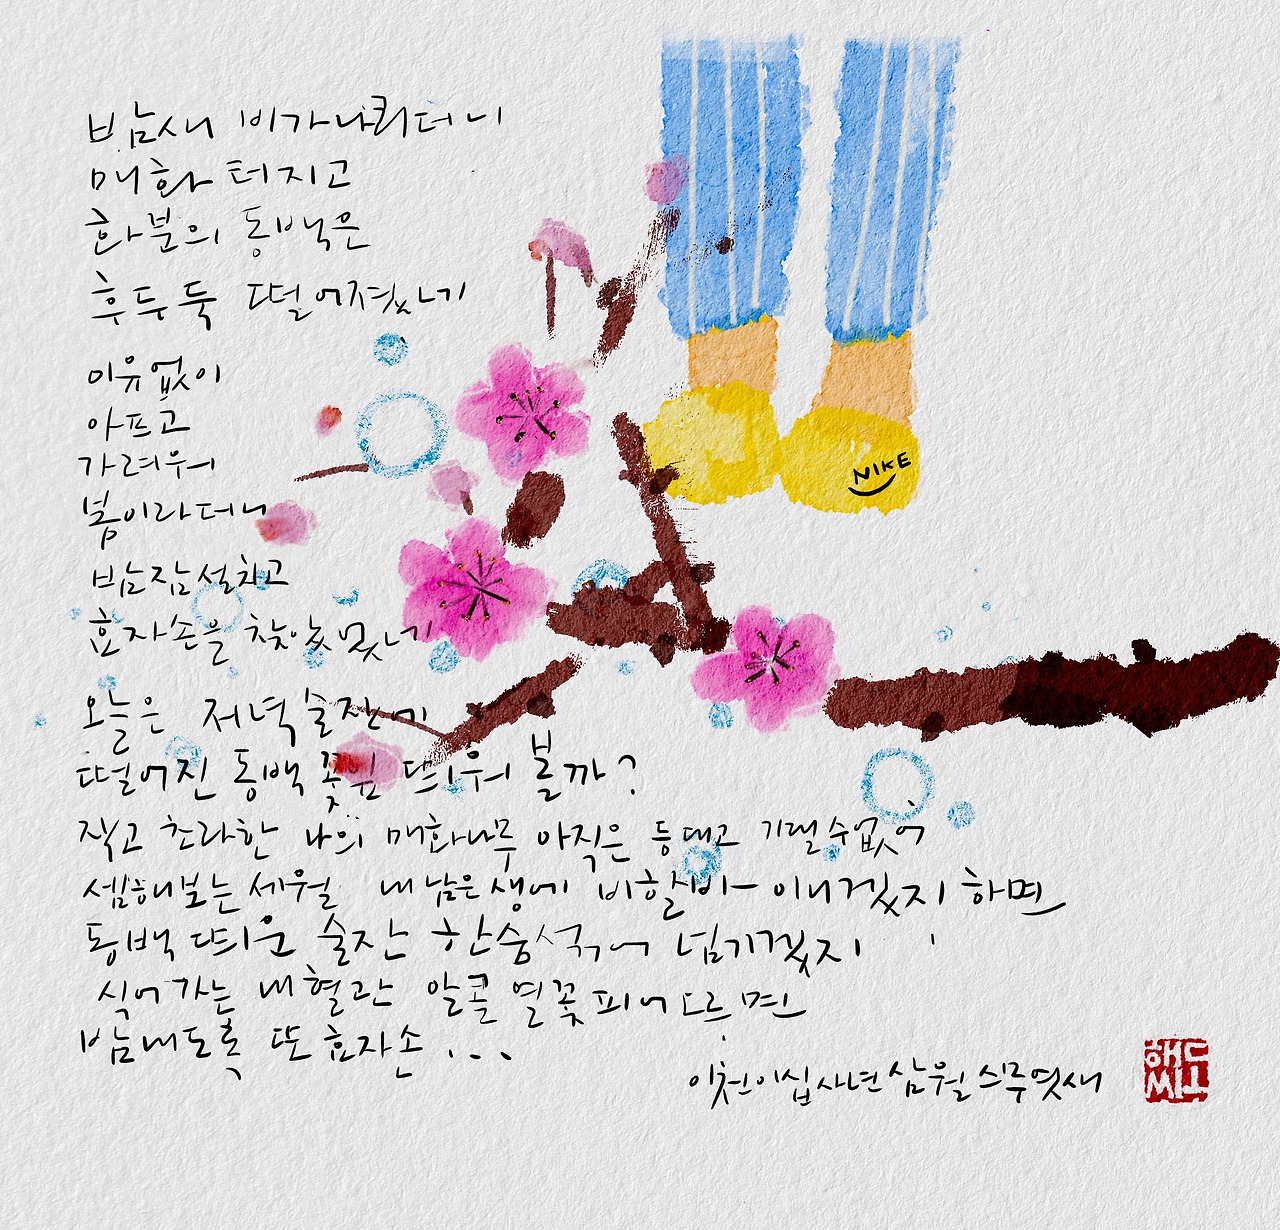 밤새 비가 나리더니
매화 터지고
화분의 동백은
후두둑 떨어졌네
이유없이
아프고
가려워
봄이라더니
밤잠 설치고
효자손을 찾았
오늘은 저녁 술잔에
떨어진 동백 꽃잎 띄워 볼까?
작고 초라한 나의 매화나무 아직은 등대고 기댈수없어
셈해보는 세월 내 남은 생에 비할바 이겠지 하며
동백 띄운 술잔 한숨 섞어 넘기겠지
식어가는 내 혈관 알콜 열꽃 피어 오르면
밤새도록 또 효자손 ...
이천이십사년 삼월 스무엿새
NIKE